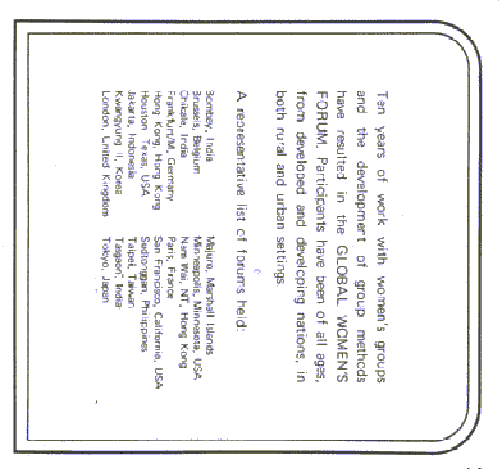 Ten years of work with women's groups
and the development of group methods
have resulted in the GLOBAL WOMEN'S
FORUM. Participants have been of all ages,
from developed and developing nations, in
both rural and urban settings.
A representative list of forums held:
Bombay, India
Brussels, Belgium
Chikala, India
Frankfurt/M, Germany
Hong Kong, Hong Kong
Houston, Texas, USA
Jakarta, Indonesia
Kwangyung Il, Korea
London, United Kingdom
Majuro, Marshall Islands
Minneapolis, Minnesota, USA
Nam Wai, NT, Hong Kong
Paris, France
San Francisco, California, USA
Sudtonggan, Philippines
Taipei, Taiwan
Talgaon, India
Tokyo, Japan